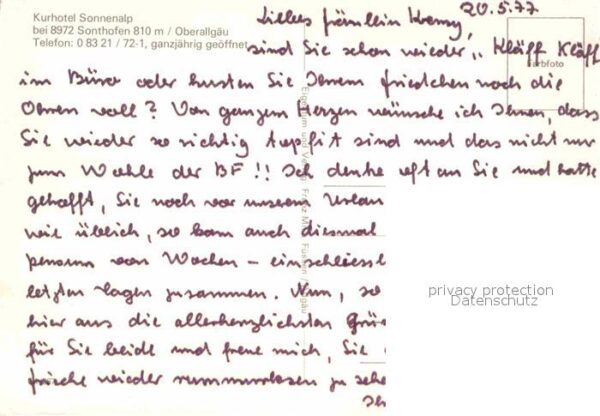 Kurhotel Sonnenalp
bei 8972 Sonthofen 810 m / Oberallgäu
Telefon: 0 83 21 / 72-1, ganzjährig geöffnet
20.5.77
Liebes Fräulein
sind Sie schon wieder „ Kläff Kläff
Farbfoto
im Büro oder husten Sie Ihrem Friedchen noch die
Ohren voll? Von ganzem Herzen wünsche ich Ihnen, dass
Sie wieder so richtig topfit sind und das nicht nur
zum Wohle der BF!! Ich denke oft an Sie und hatte
gehofft, Sie noch vor unserem Urlau
wie üblich, so kam auch diesmal
pensum von Wochen – einschliessl
letzten Tagen zusammen. Nun, so
hier aus die allerherzlichsten Grü
für Sie beide und freue mich, Sie
frische wieder zu sehe
Ih
Eigentum und Verlag Franz Füssen / Allgäu
privacy protection
Datenschutz